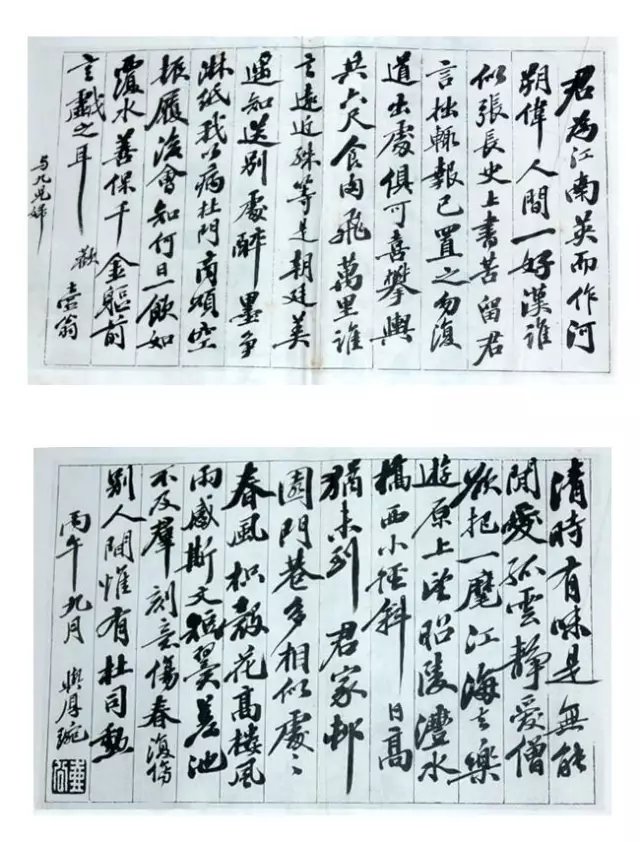 君為江南英而作河
朔偉人間一好漢誰
似張長史上書苦留君
言拙輒報已置之勿復
道出處俱可喜攀輿
共六尺食肉飛萬里誰
言遠近殊等是朝廷美
遥知送別處醉墨争
淋紙我以病杜門商頌空
振履後會知何日一飲如
覆水善保千金軀前
言戲之耳
清時有味是無能
閒愛孤雲靜愛僧
欲把一麾江海去樂
遊原上望昭陵灃水
橋西小徑斜日高
猶未到君家村
園門巷多相似處々
春風枳殼花高楼風
雨感斯文短翼差池
不及羣刻意傷春復傷
別人間惟有杜司勳
丙午九月